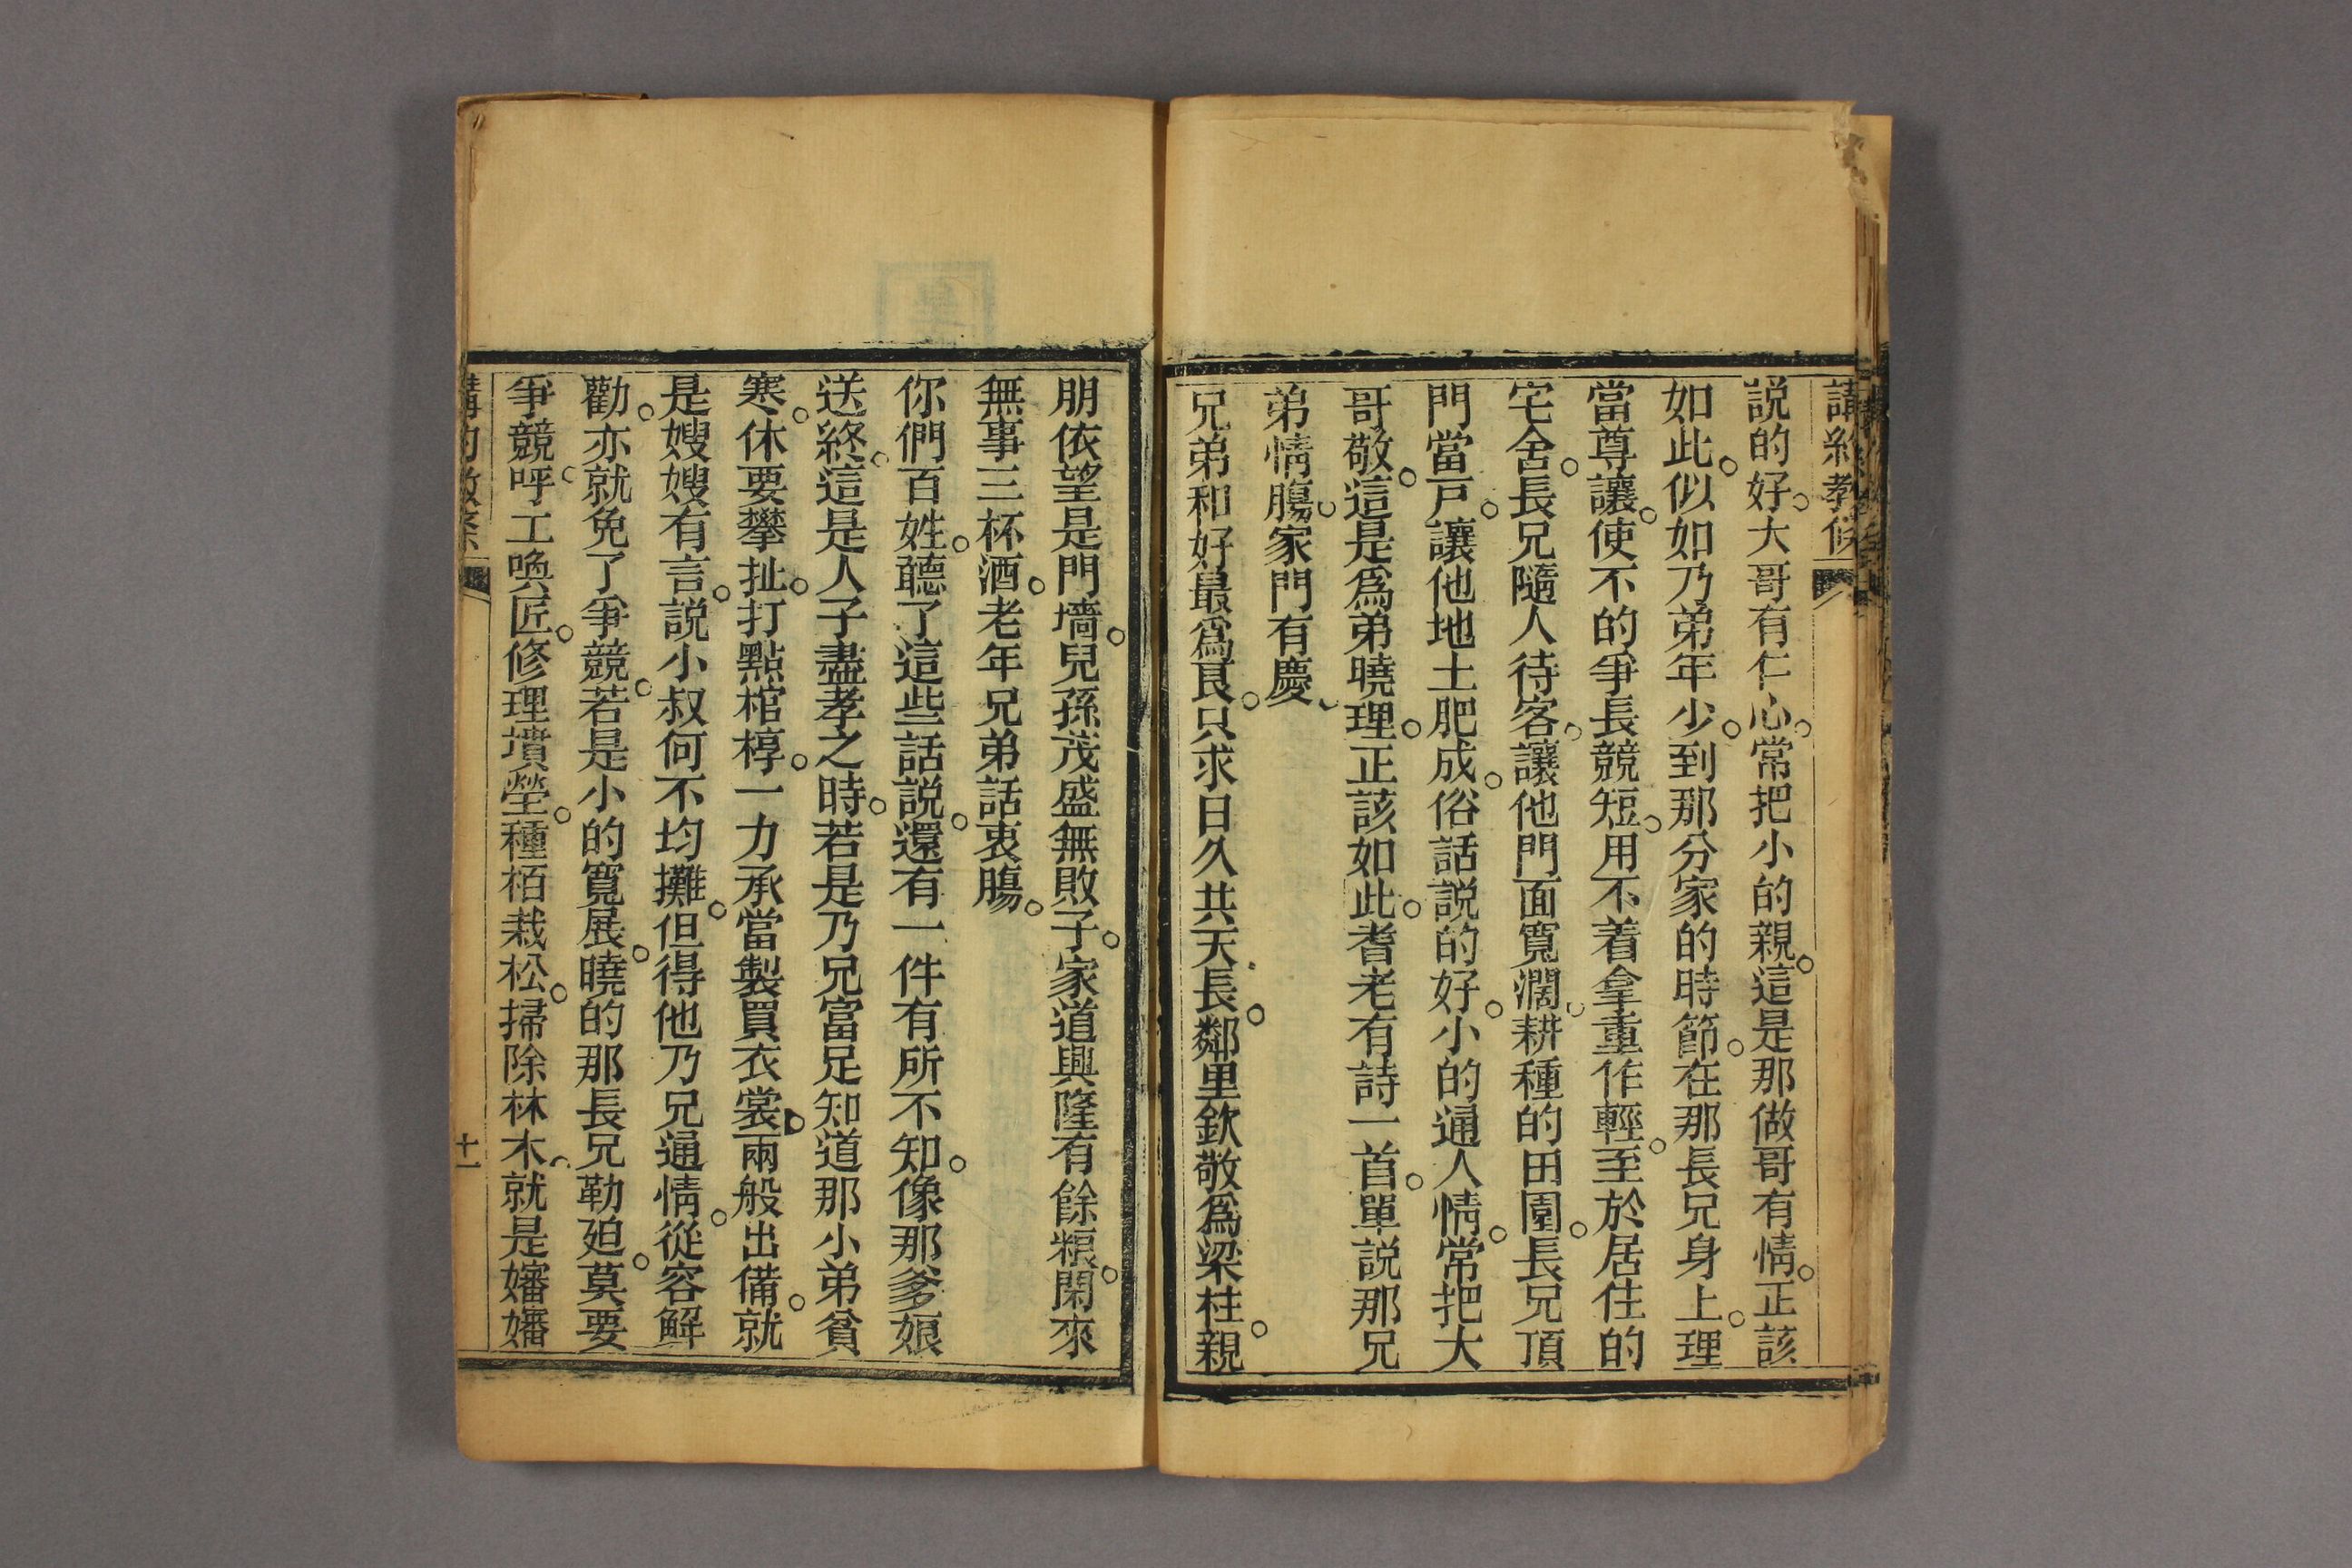 講約教條
説的好大哥有仁心常把小的親這是那做哥有情正該
如此似如乃弟年少到那分家的時節在那長兄身上理
當尊讓使不的爭長競短用不着拿重作輕至於居住的
宅舍長兄隨人待客讓他門面寬濶耕種的田園長兄頂
門當戸讓他地土肥成俗話説的好小的通人情常把大
哥敬這是爲弟曉理正該如此耆老有詩一首單説那兄
弟情腸家門有慶
兄弟和好最爲良只求日久共天長鄰里欽敬爲梁柱親
朋依望是門墻兒孫茂盛無敗子家道興隆有餘粮閑來
無事三杯酒老年兄弟話衷腸
你們百姓聽了這些話説還有一件有所不知像那爹娘
送終這是人子盡孝之時若是乃兄富足知道那小弟貧
寒休要攀扯打點棺椁一力承當製買衣裳兩般出備就
是嫂嫂有言説小叔何不均攤但得他乃兄通情從容解
勸亦就免了爭競若是小的寬展曉的那長兄勒廹莫要
爭競呼工喚匠修理墳塋種栢栽松掃除林木就是嬸嬸
講約教條
十一